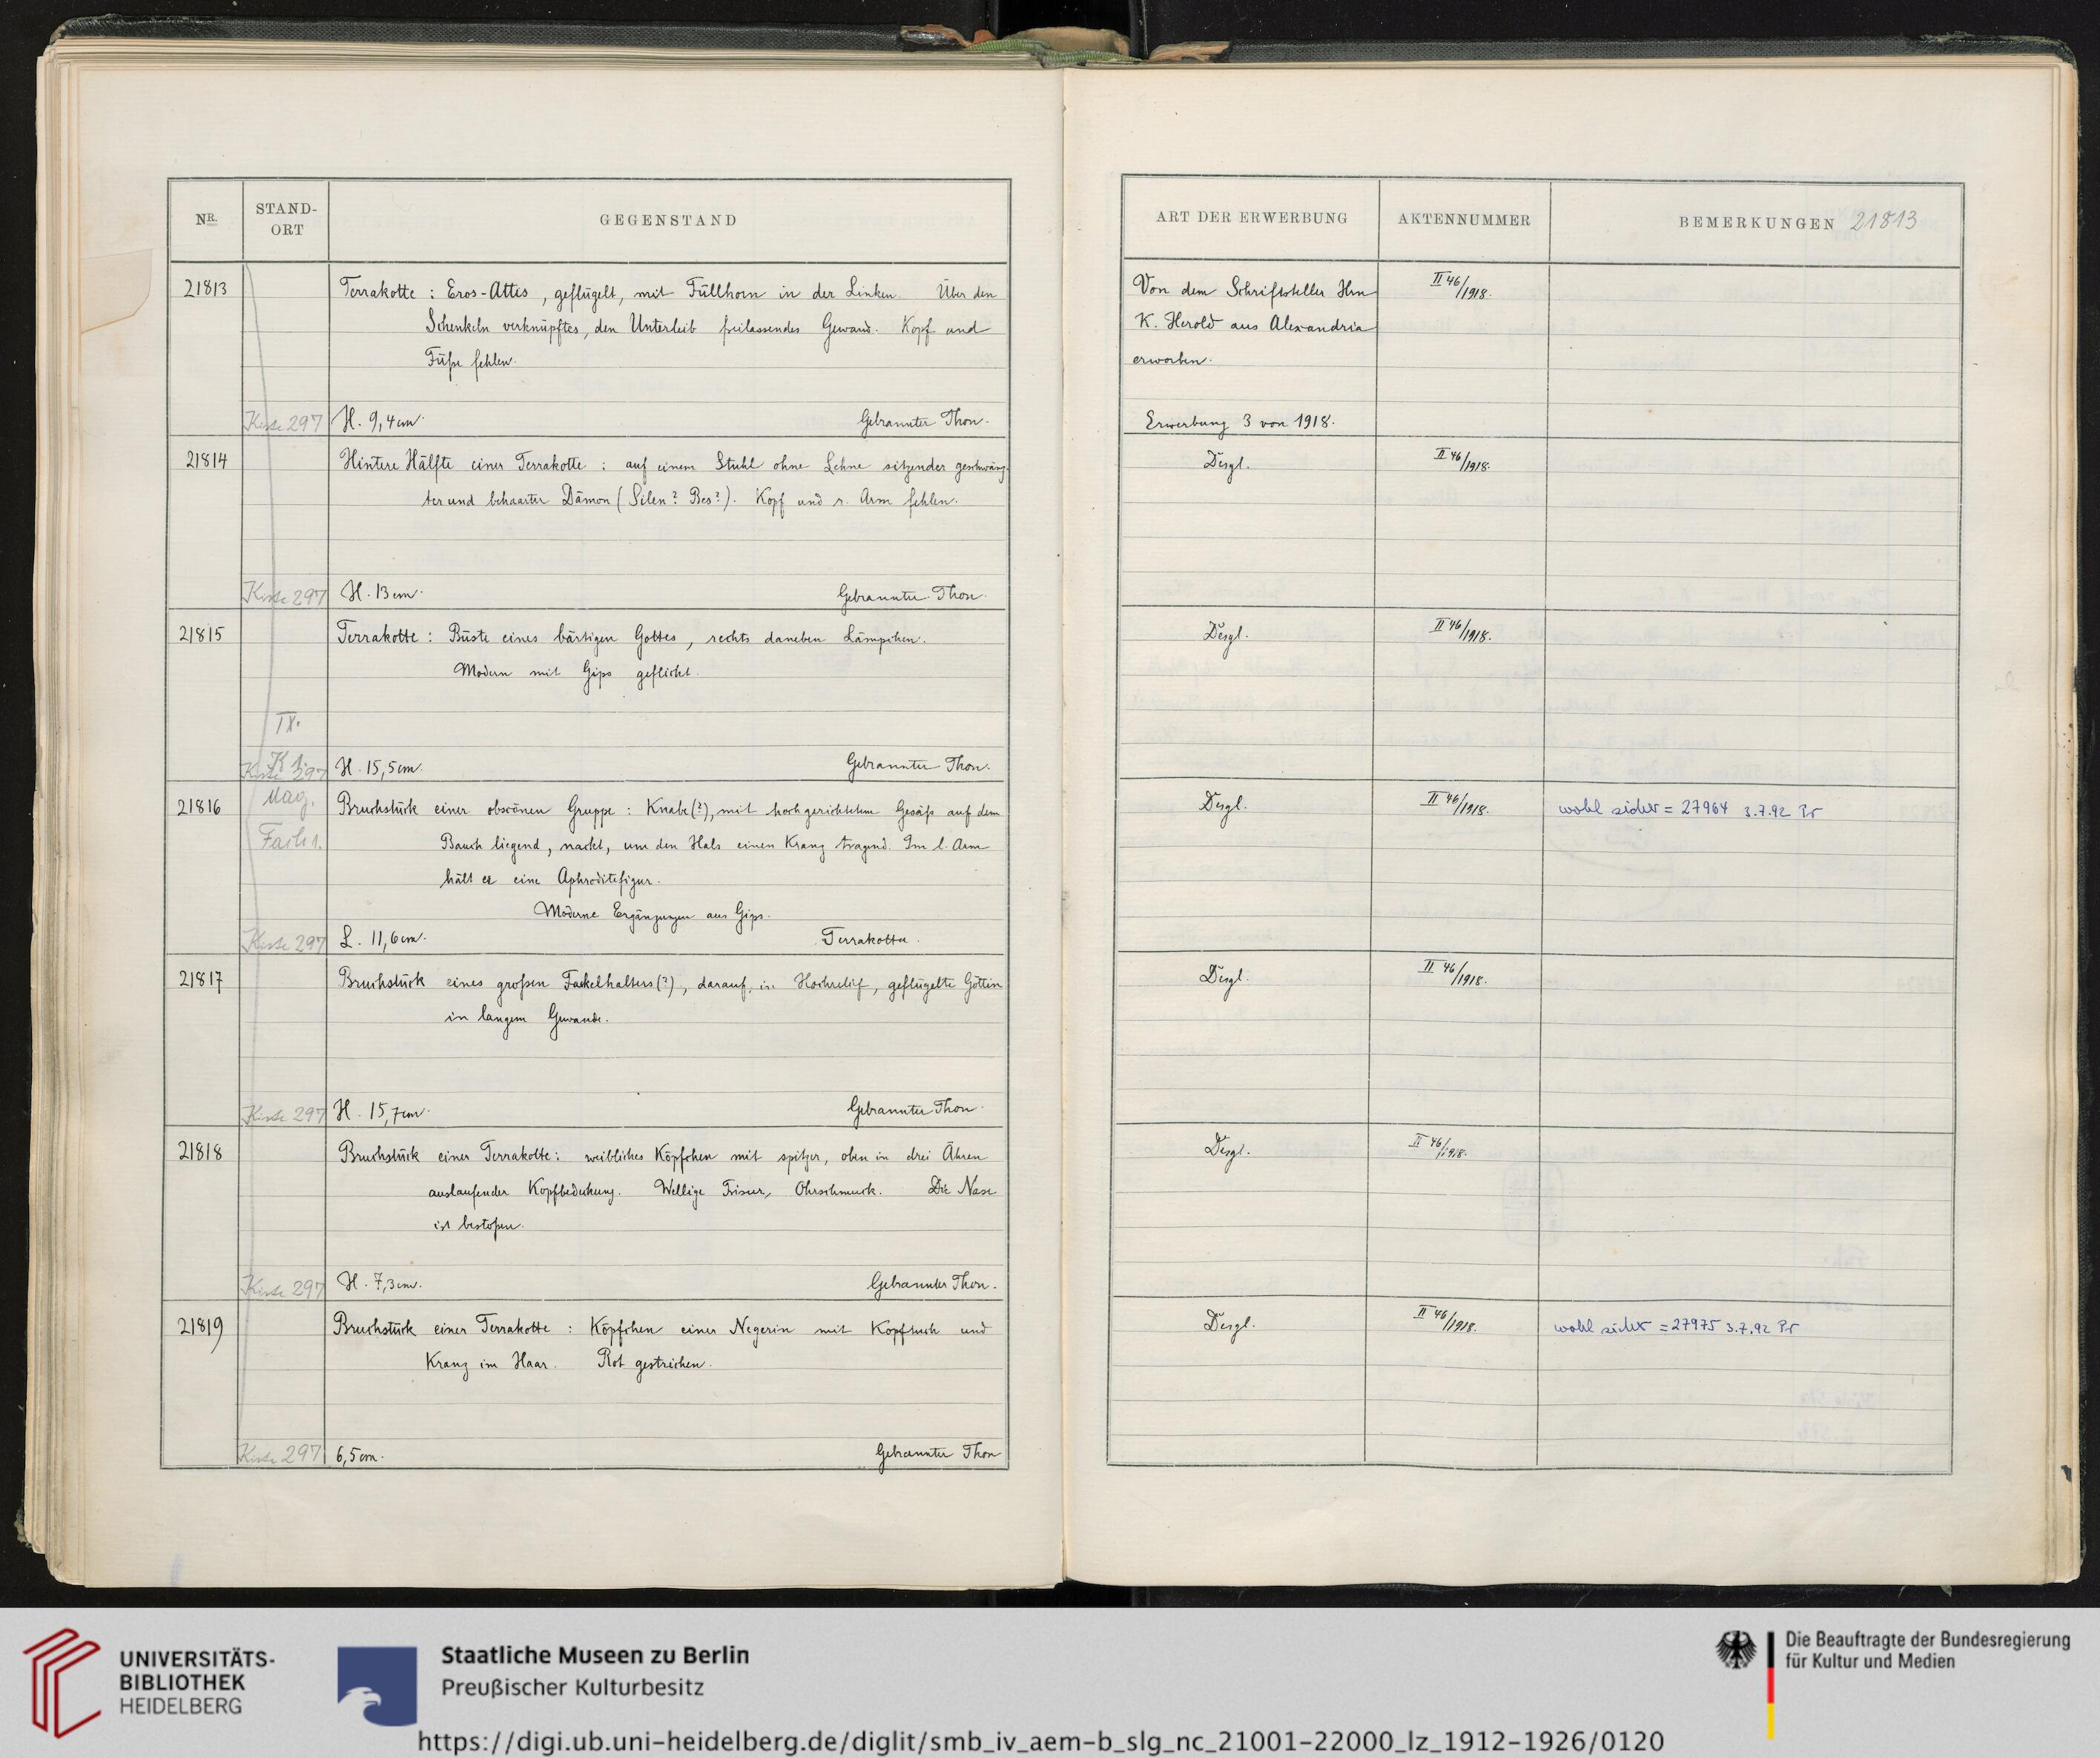 NR.
STAND-
ORT
GEGENSTAND
21813
Terrakotte : Eros-Attis, geflügelt, mit Füllhorn in der Linken. Über den
Schenkeln verknüpftes, den Unterleib freilassendes Gewand. Kopf und
Füße fehlen.
Kiste 297 H. 9,4 cm. Gebrannter Thon.
21814
Hintere Hälfte einer Terrakotte : auf einem Stuhl ohne Lehne sitzender geschwänz-
ter und behaarter Dämon (Silen? Bes?). Kopf und r. Arm fehlen.
Kiste 297 H. 13 cm. Gebrannter Thon.
21815
Terrakotte : Büste eines bärtigen Gottes, rechts daneben Lämpchen.
Modern mit Gips geflickt.
K 1.
Kiste 297 H. 15,5 cm. Gebrannter Thon.
21816
Mag.
Fach 1.
Bruchstück einer obscönen Gruppe : Knabe (?), mit hochgerichtetem Gesäß auf dem
Bauch liegend, nackt, um den Hals einen Kranz tragend. Im l. Arm
hält er eine Aphroditefigur.
Moderne Ergänzungen aus Gips.
Kiste 297 L. 11,6 cm. Terrakotta.
21817
Bruchstück eines großen Fackelhalters (?), darauf, in Hochrelief, geflügelte Göttin
in langem Gewande.
Kiste 297 H. 15,7 cm. Gebrannter Thon.
21818
Bruchstück einer Terrakotte : weibliches Köpfchen mit spitzer, oben in drei Ähren
auslaufender Kopfbedeckung. Wellige Frisur, Ohrschmuck. Die Nase
ist bestoßen.
Kiste 297 H. 7,3 cm. Gebrannter Thon.
21819
Bruchstück einer Terrakotte : Köpfchen einer Negerin mit Kopftuch und
Kranz im Haar. Rot gestrichen.
Kiste 297 6,5 cm. Gebrannter Thon
ART DER ERWERBUNG
AKTENNUMMER
BEMERKUNGEN 21813
Von dem Schriftsteller Hrn II 46/1918.
K. Herold aus Alexandria
erworben.
Erwerbung 3 von 1918.
Desgl. II 46/1918.
Desgl. II 46/1918.
Desgl. II 46/1918. wohl sicher = 27964 3.7.92 Pr
Desgl. II 46/1918.
Desgl. II 46/1918.
Desgl. II 46/1918. wohl sicher = 27975 3.7.92 Pr
UNIVERSITÄTS-
BIBLIOTHEK
HEIDELBERG
Staatliche Museen zu Berlin
Preußischer Kulturbesitz
Die Beauftragte der Bundesregierung
für Kultur und Medien
https://digi.ub.uni-heidelberg.de/diglit/smb_iv_aem-b_slg_nc_21001-22000_lz_1912-1926/0120